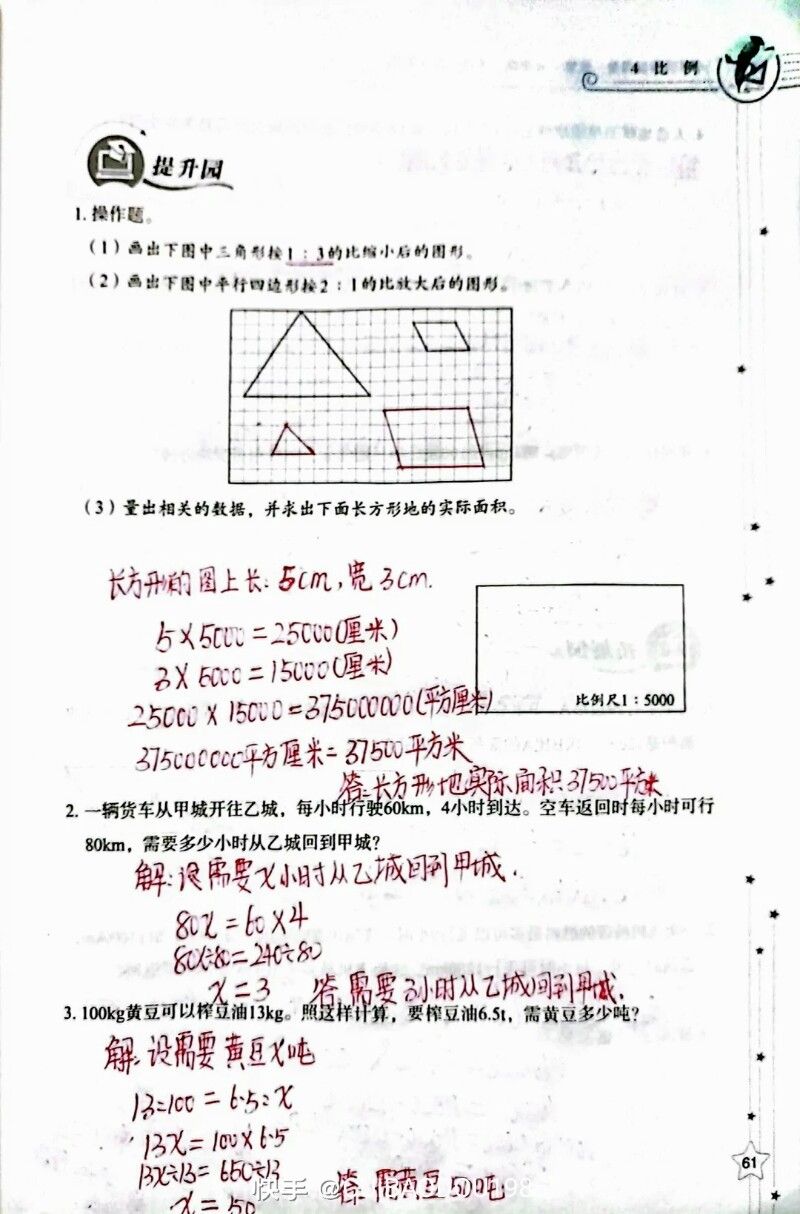 4 比 例
提升园
1. 操作题。
（1）画出下图中三角形按1：3的比缩小后的图形。
（2）画出下图中平行四边形按2：1的比放大后的图形。
（3）量出相关的数据，并求出下面长方形地的实际面积。
长方形的图上长：5cm，宽3cm.
5×5000=25000(厘米)
3×5000=15000(厘米)
25000×15000=375000000(平方厘米)
比例尺1：5000
375000000平方厘米=37500平方米
答：长方形地实际面积37500平方米
2. 一辆货车从甲城开往乙城，每小时行驶60km，4小时到达。空车返回时每小时可行
80km，需要多少小时从乙城回到甲城？
解：设需要x小时从乙城回到甲城．
80x=60×4
80x÷80=240÷80
x=3 答：需要3小时从乙城回到甲城．
3. 100kg黄豆可以榨豆油13kg。照这样计算，要榨豆油6.5t，需黄豆多少吨？
解：设需要黄豆x吨
13:100=6.5:x
13x=100×6.5
13x÷13=650÷13
x=50 答：需黄豆50吨
快手
61